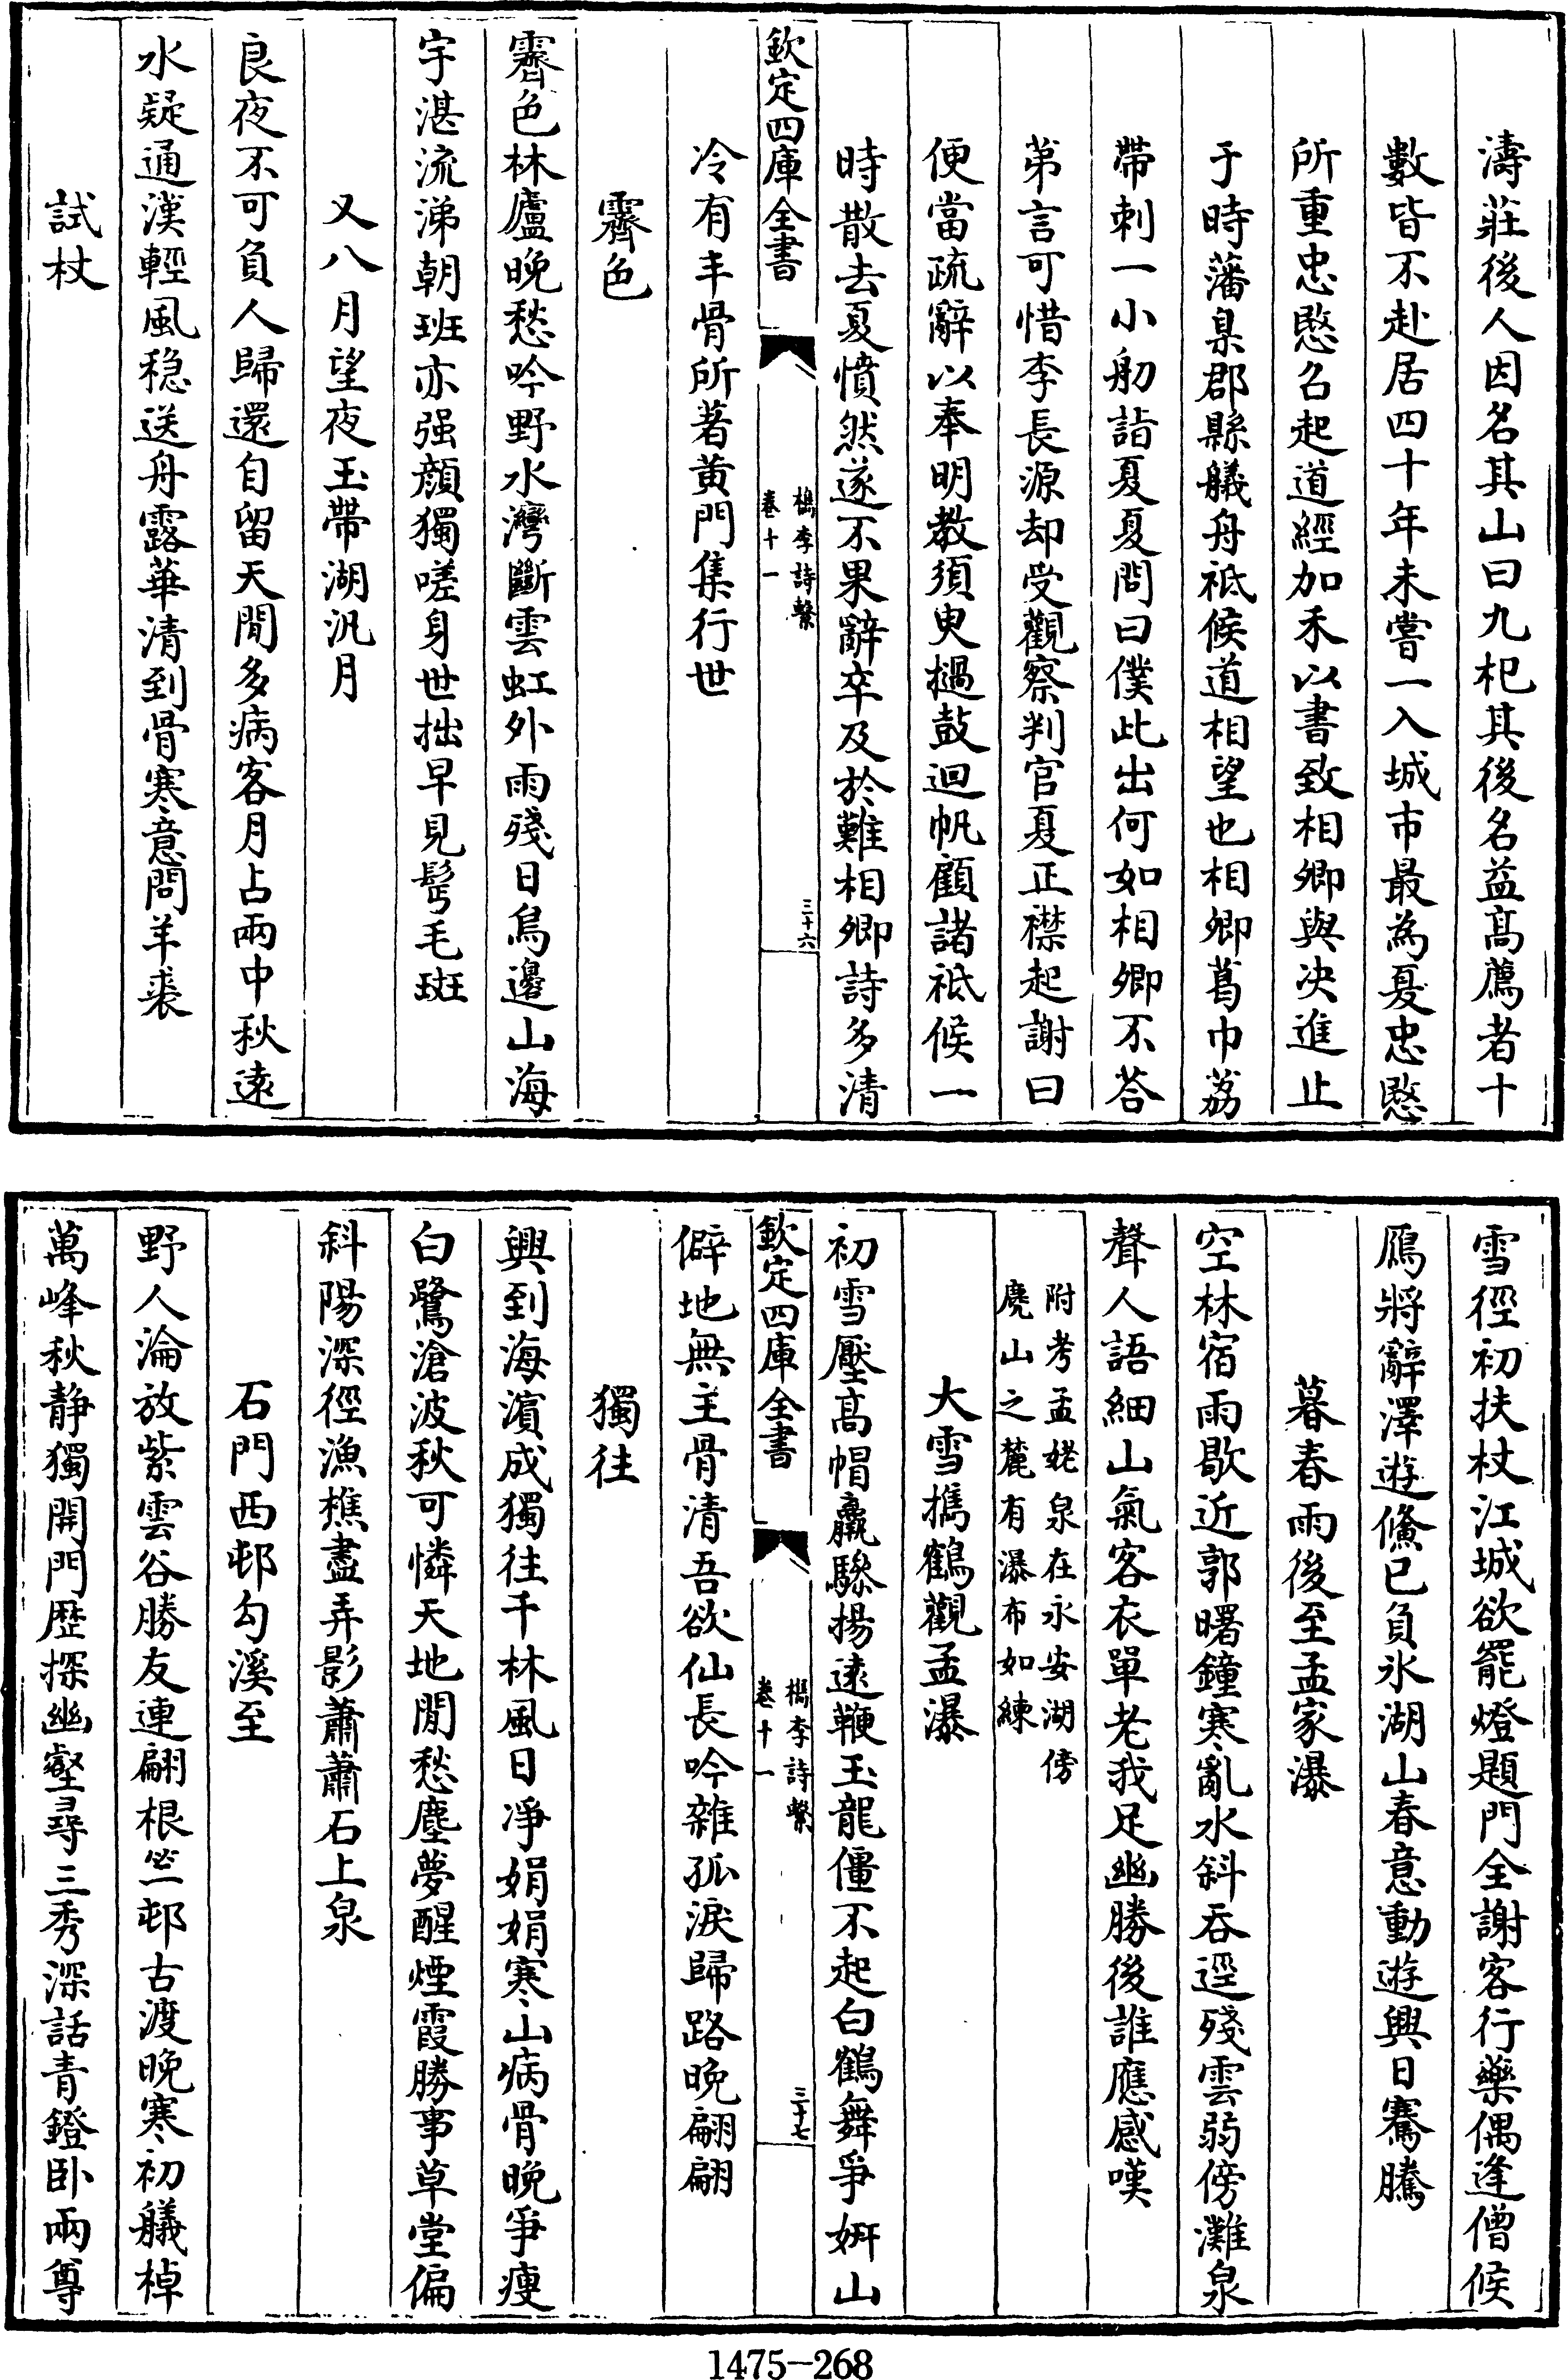 濤莊後人因名其山曰九杞其後名益高薦者十
數皆不赴居四十年未嘗一入城市最為夏忠愍
所重忠愍召起道經加禾以書致相卿與决進止
于時藩臬郡縣艤舟祗候道相望也相卿葛巾荔
帶刺一小舠詣夏夏問曰僕此出何如相卿不荅
第言可惜李長源却受觀察判官夏正襟起謝曰
便當疏辭以奉明教須臾撾鼓迴帆顧諸祗候一
時散去夏憤然遂不果辭卒及於難相卿詩多清
欽定四庫全書
檇李詩繫
卷十一
三十六
冷有丰骨所著黄門集行世
霽色
霽色林廬晚愁吟野水灣斷雲虹外雨殘日鳥邊山海
宇湛流涕朝班亦强顔獨嗟身世拙早見髩毛斑
又八月望夜玉帶湖汎月
良夜不可負人歸還自留天閒多病客月占兩中秋遠
水疑通漢輕風穏送舟露華清到骨寒意問羊裘
試杖
雪徑初扶杖江城欲罷燈題門全謝客行藥偶逢僧候
鴈將辭澤遊鯈已負氷湖山春意動遊興日騫騰
暮春雨後至孟家瀑
空林宿雨歇近郭曙鐘寒亂水斜吞逕殘雲弱傍灘泉
聲人語細山氣客衣單老我足幽勝後誰應感嘆
附考孟姥泉在永安湖傍
麂山之麓有瀑布如練
大雪擕鶴觀孟瀑
初雪壓高帽羸驂揚遠鞭玉龍僵不起白鶴舞爭妍山
欽定四庫全書
檇李詩繫
卷十一
三十七
僻地無主骨清吾欲仙長吟雜孤淚歸路晚翩翩
獨往
興到海濵成獨往千林風日凈娟娟寒山病骨晚爭瘦
白鷺滄波秋可憐天地閒愁塵夢醒煙霞勝事草堂偏
斜陽深徑漁樵盡弄影蕭蕭石上泉
石門西邨勾溪至
野人淪放紫雲谷勝友連翩根竺邨古渡晚寒初艤棹
萬峰秋静獨開門歴探幽壑尋三秀深話青鐙卧兩尊
1475-268